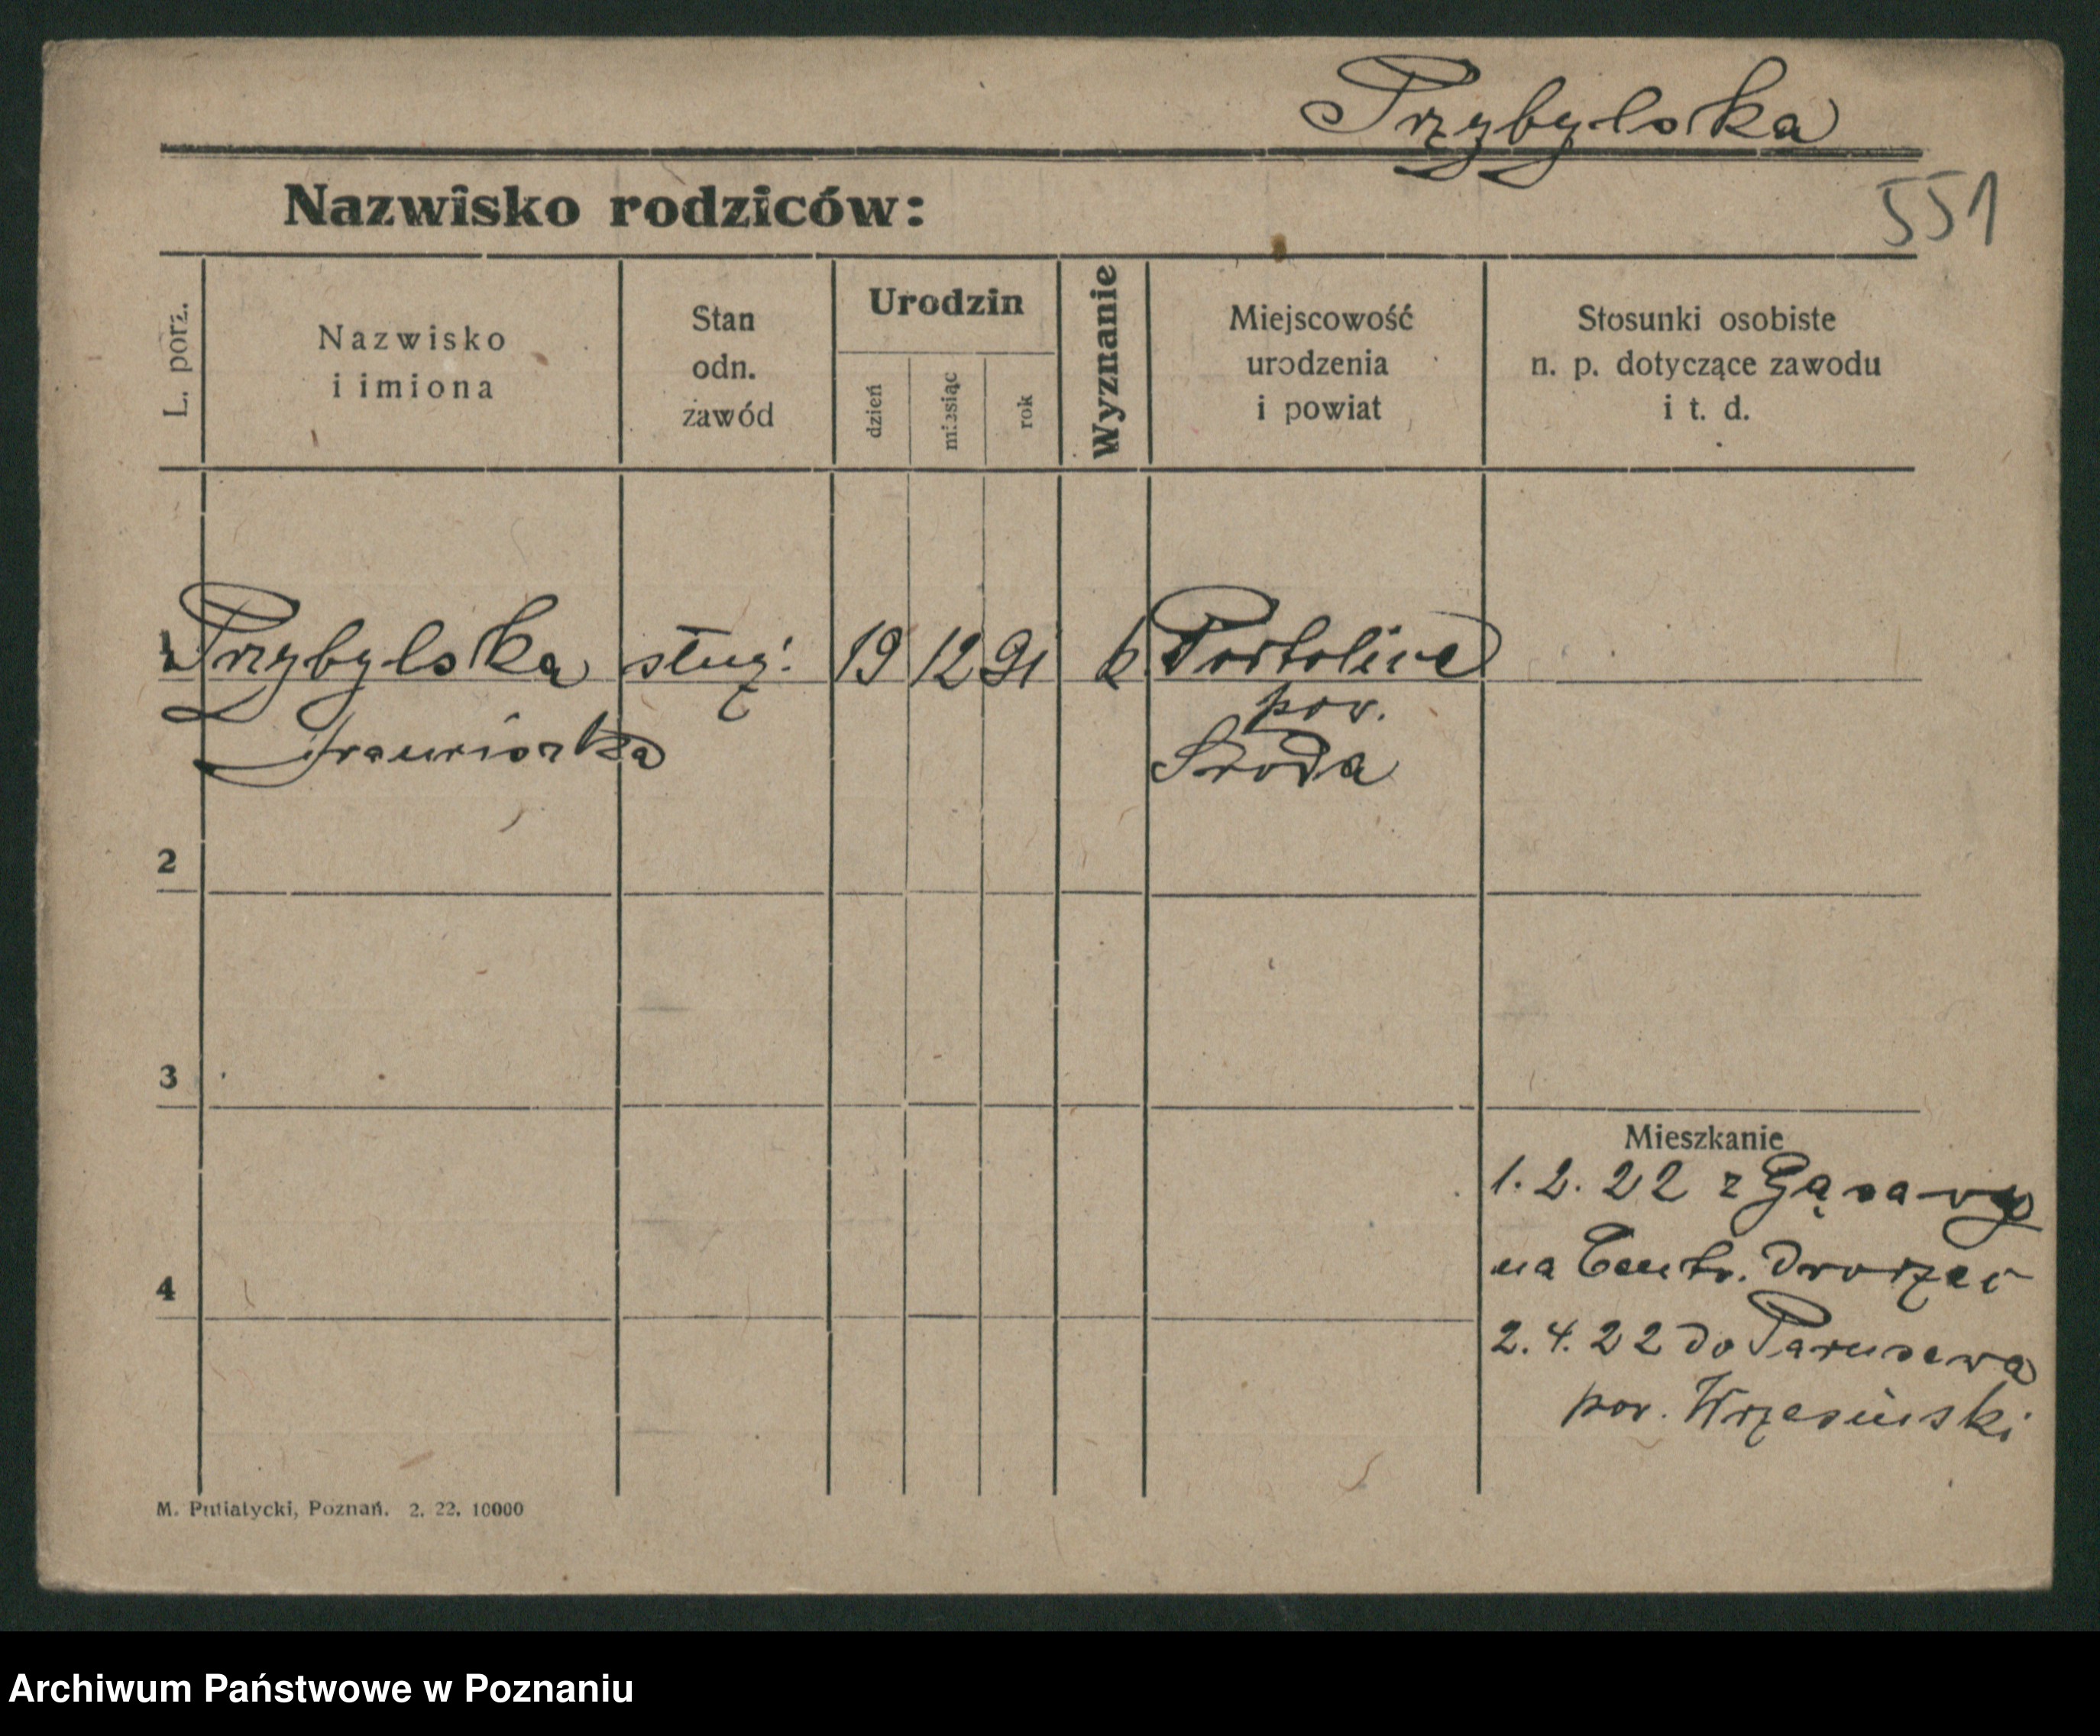 Przybylska
551
Nazwisko rodziców:
L. porz.
Nazwisko
i imiona
Stan
odn.
zawód
Urodzin
dzień
miesiąc
rok
Wyznanie
Miejscowość
urodzenia
i powiat
Stosunki osobiste
n. p. dotyczące zawodu
i t. d.
1 Przybylska służ. 19 12 91 k
Franciszka pow.
Środa
2
3
4
Mieszkanie
1. 2. 22 z Gąsawy
na Centr. Dworzec
2. 4. 22 do Parusewa
pow. Wrzesiński
M. Putiatycki, Poznań. 2. 22. 10000
Archiwum Państwowe w Poznaniu